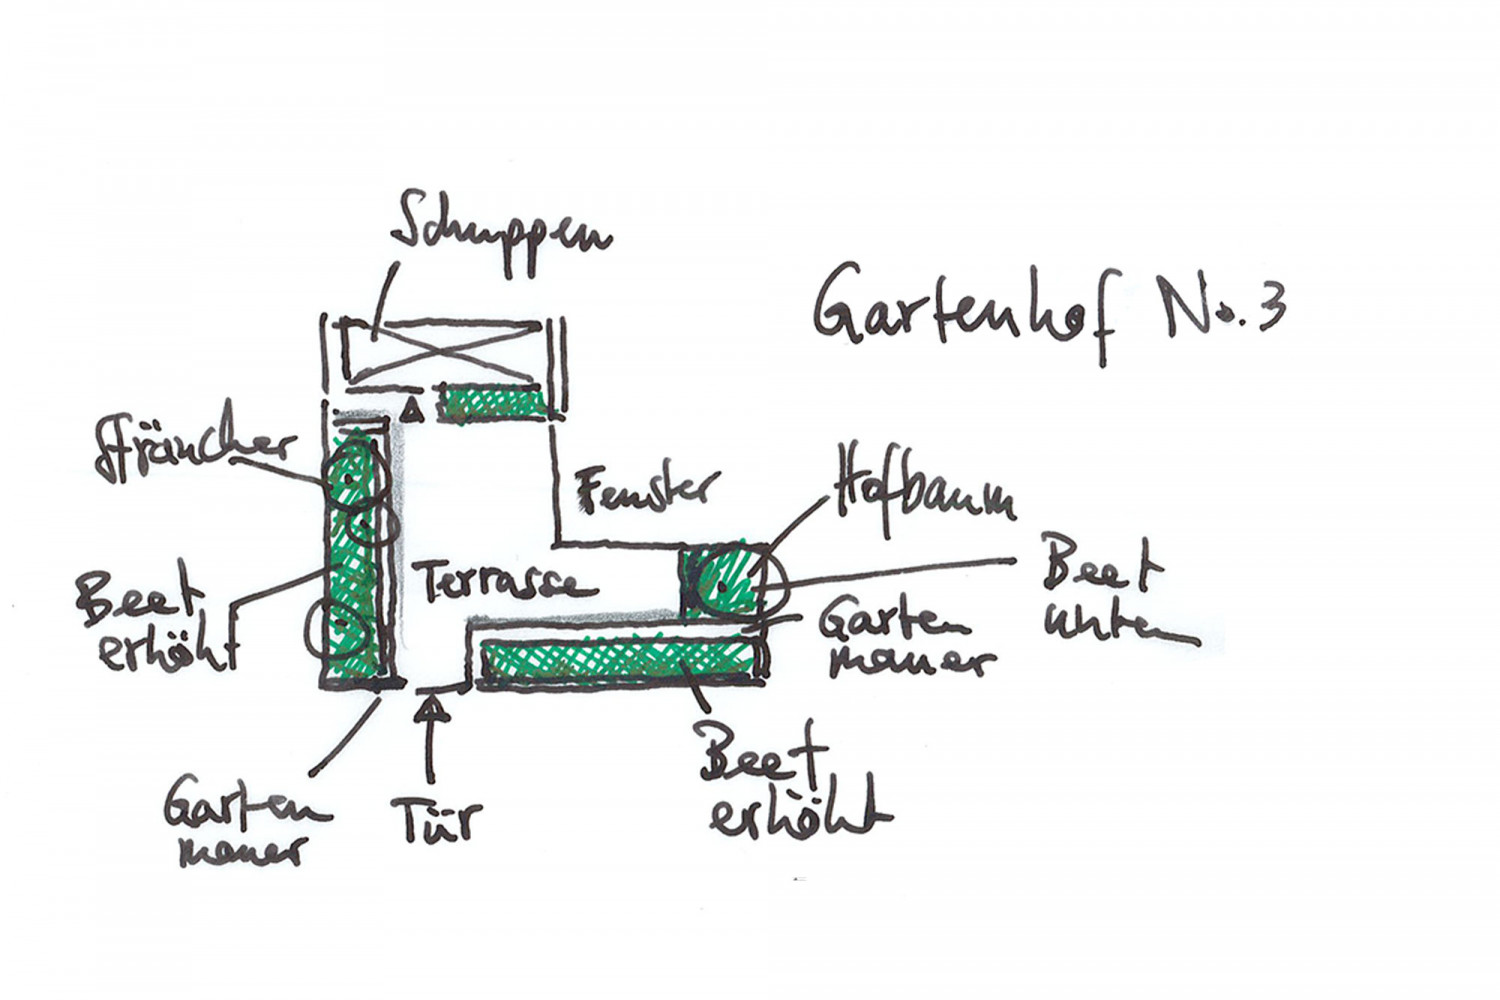 Schuppen
Gartenhof No. 3
Sträucher
Fenster
Hofbaum
Beet
erhöht
Terrasse
Beet
unten
Garten
mauer
Garten
mauer
Tür
Beet
erhöht